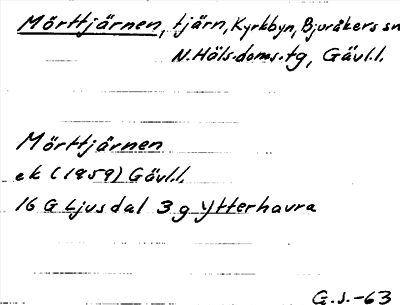 Mörttjärnen, tjärn, Kyrkbyn, Bjuråkers sn
N. Häls. doms. tg, Gävl.l.
Mörttjärnen
ek (1959) Gävl.l.
16 G Ljusdal 3 g Ytterhavra
G.J.-63